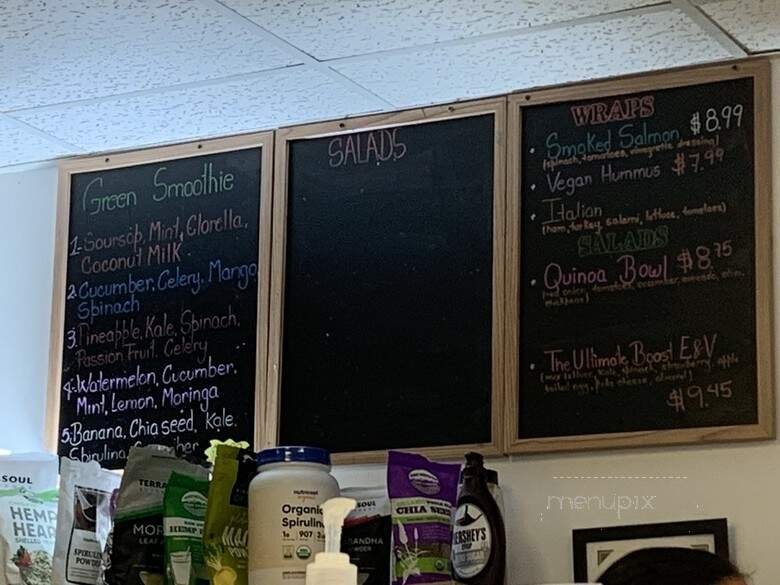 Green Smoothie
1. Soursop, Mint, Clorella,
Coconut Milk
2. Cucumber, Celery, Mango
Spinach
3. Pineapple, Kale, Spinach,
Passion Fruit, Celery
4. Watermelon, Cucumber,
Mint, Lemon, Moringa
5. Banana, Chia seed, Kale,
Spirulina
SALADS
WRAPS
Smoked Salmon $8.99
(spinach, tomatoes, vinegrette dressing)
Vegan Hummus $7.99
Italian
(ham, turkey, salami, lettuce, tomatoes)
SALADS
Quinoa Bowl $8.75
(red onion, tomatoes, cucumber, avocado,
The Ultimate Boost E&V
kale, spinach, strawberry, apple
boiled egg, feta cheese, almond)
$9.45
SOUL
HEMP
HEAR
SHELLED
SPIRULINA
POWDER
TERRA
MOR
LEAF
HEMP
nutricost
organic
Organic
Spirulina
907
CHIA SEE
HERSHEY'S
SYRUP
menupix